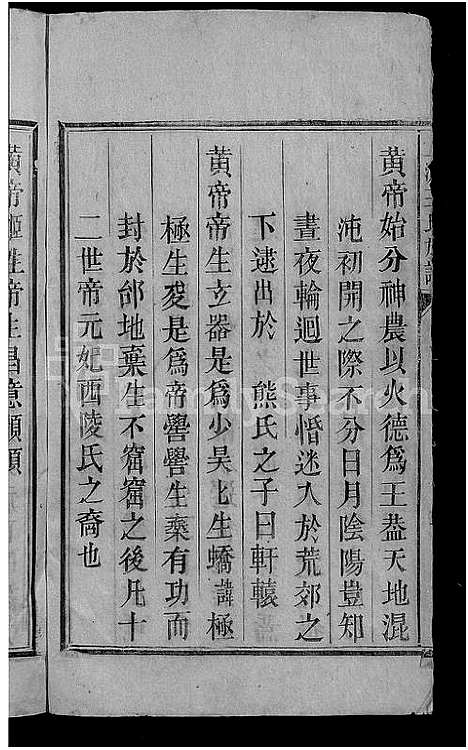 黄帝始分神農以火德爲王葢天地混
沌初開之際不分日月陰陽豈知
晝夜輪迴世事惛迷入於荒郊之
下逮出於 熊氏之子曰軒轅
黄帝帝生玄器是爲少昊乜生蟜諱極
極生夋是爲帝嚳嚳生棄有功而
封於邰地棄生不窟窟之後凢十
二世帝元妃西陵氏之裔也
黄帝姬姓帝生昌意顓頊
FamilySearch